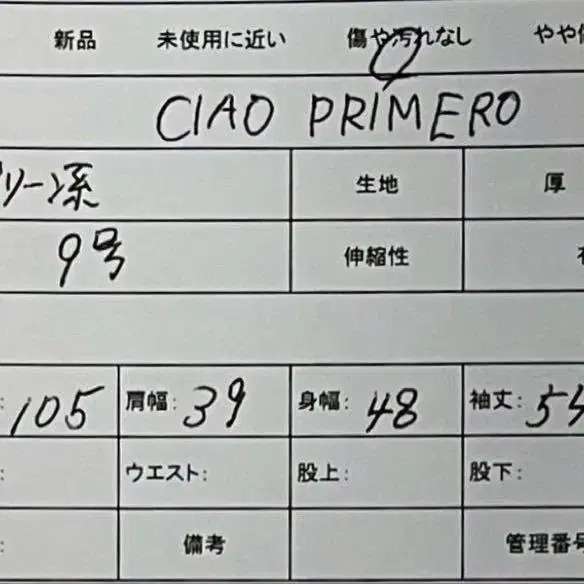 新品 未使用に近い 傷や汚れなし やや
CIAO PRIMERO
リーン系 生地 厚
9号 伸縮性
: 105 肩幅: 39 身幅: 48 袖丈: 54
: ウエスト: 股上: 股下:
: 備考 管理番号